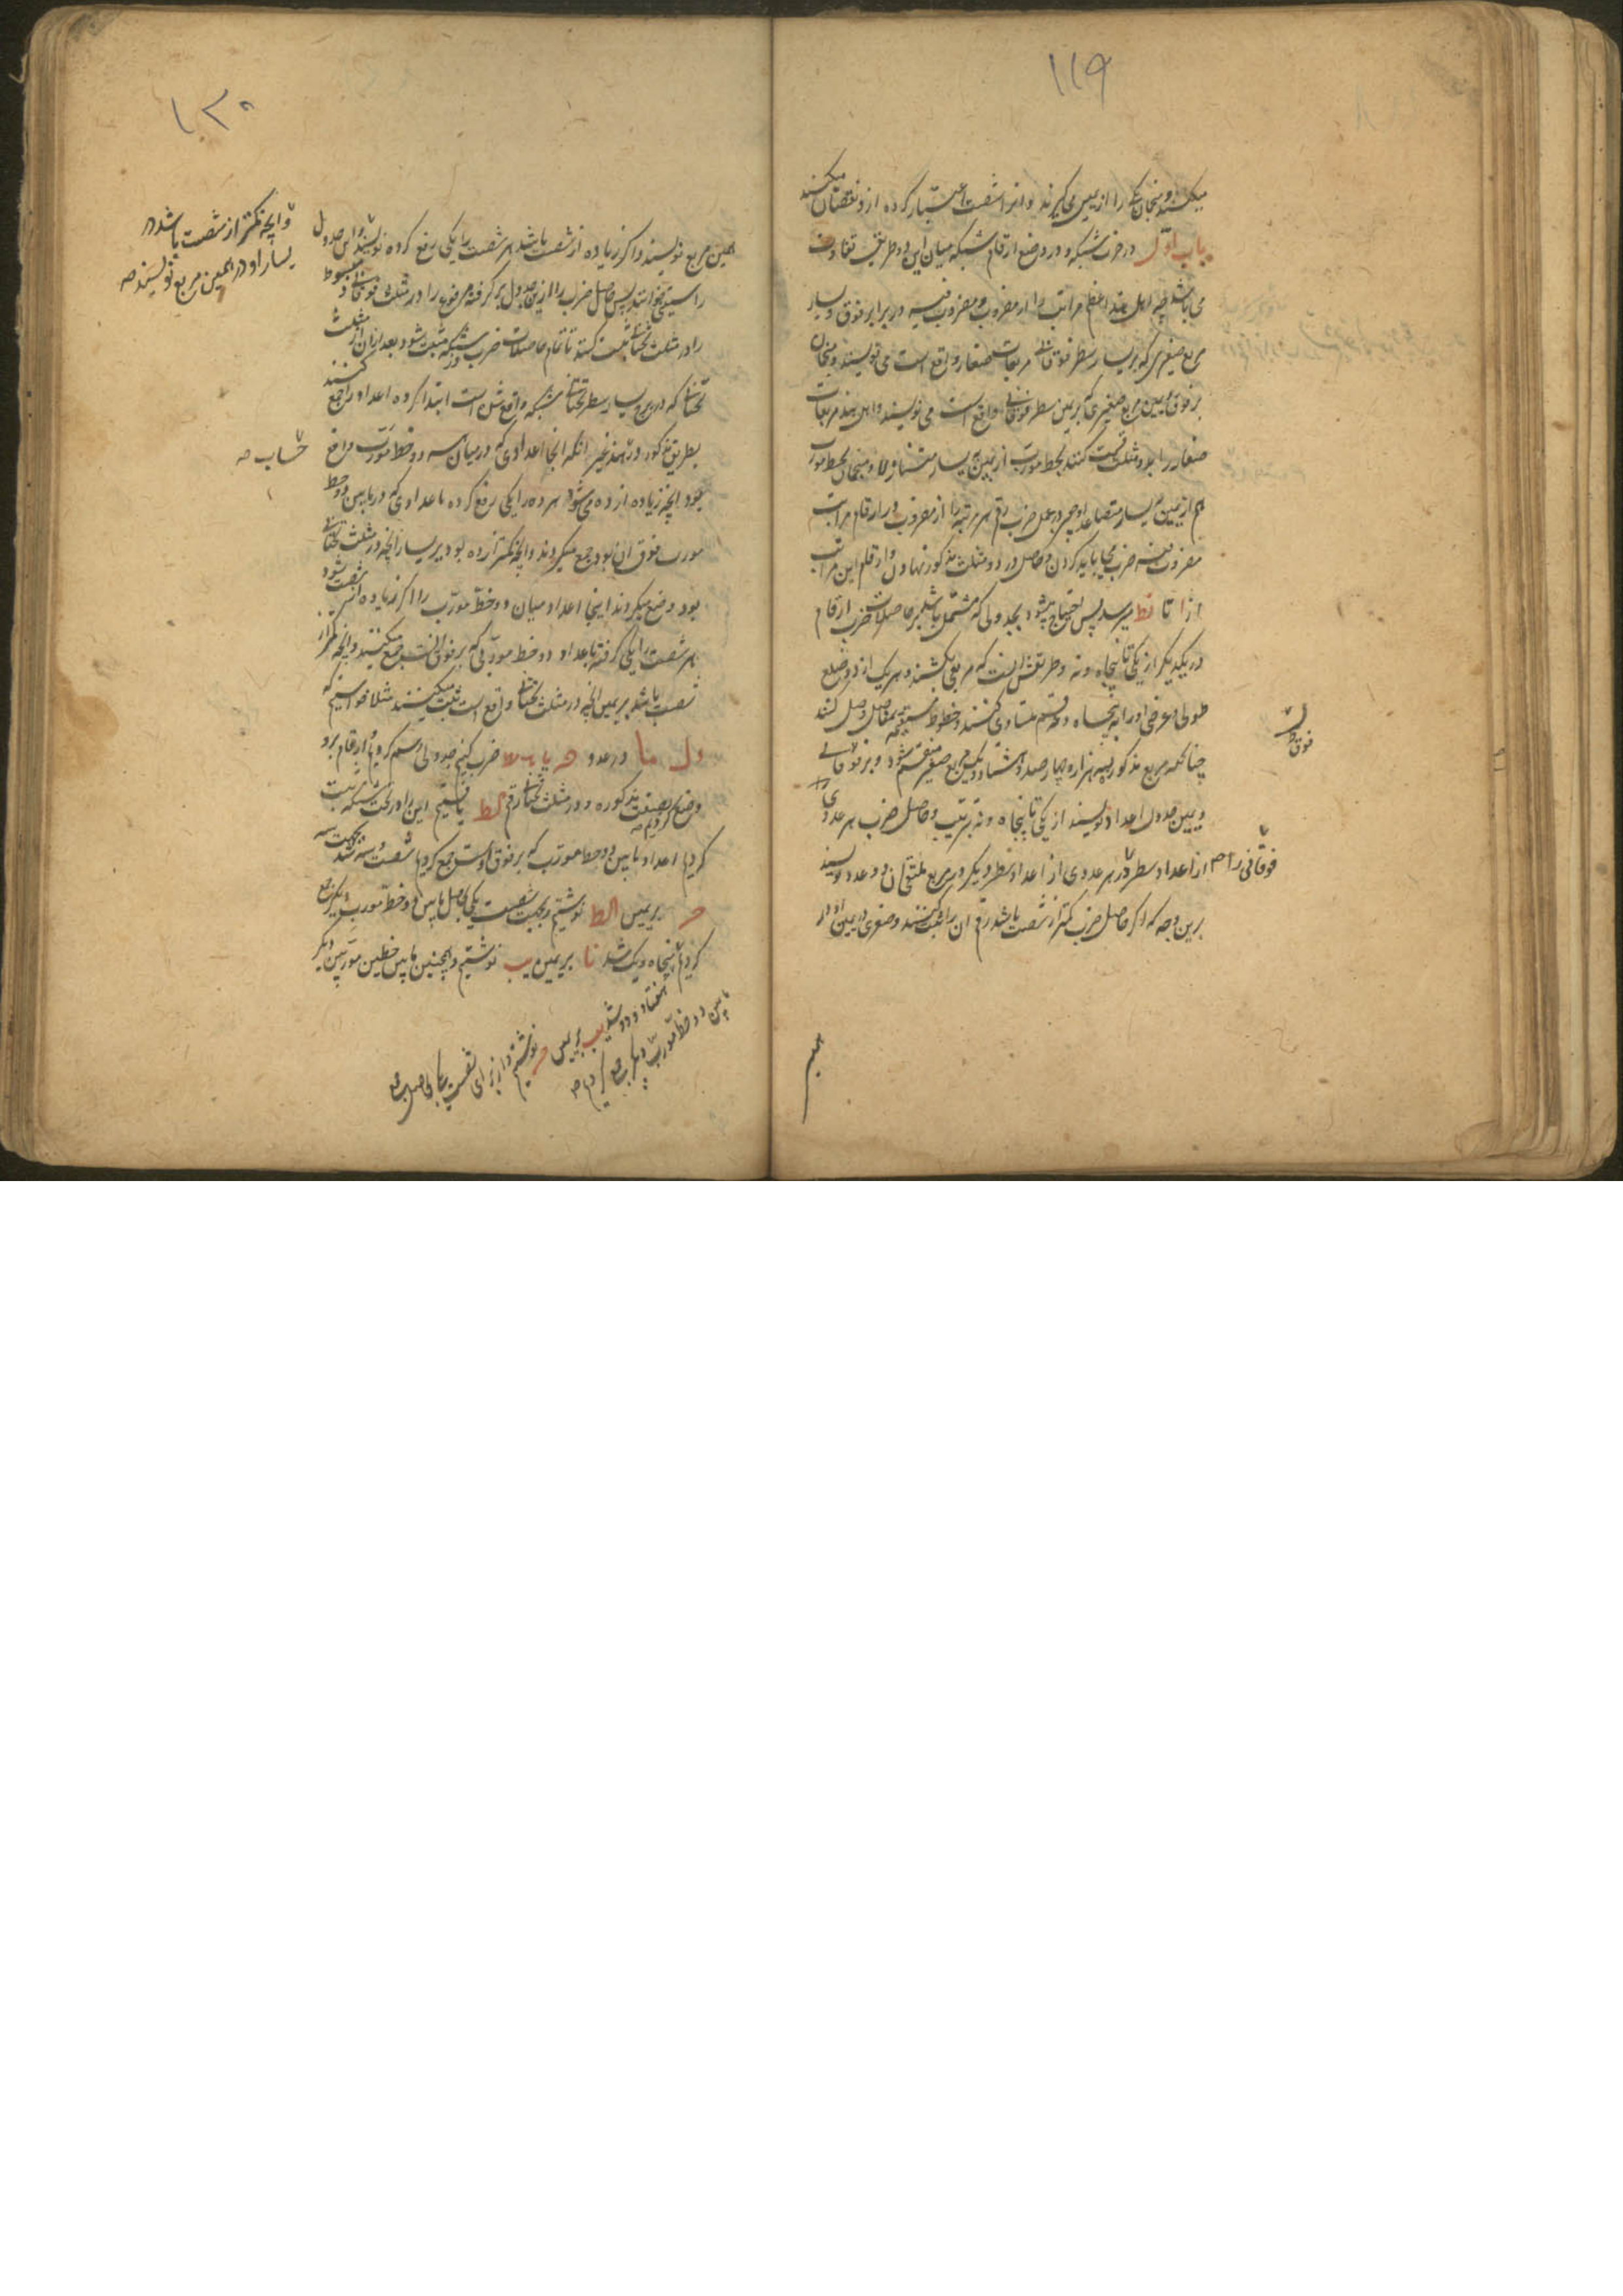 ۱۱۹
میکنند و منجمان یکی را از یمین می گیرند و انرا شصت اعتبار کرده ازو نقصان میکنند
باب اول در ضرب شبکه و در وضع ارقام شبکه میان این دو طریق تفاوت
می باشد چه اهل هند اعظم مراتب را از مضروب و مضروب فیه در برابر فوق و یسار
مربع صغیری که بر یسار سطر فوقانی مربعات صغار واقع است می نویسند و منجمان
بر فوق و یمین مربع صغیری که بر یمین سطر فوقانی واقع است می نویسند و اهل هند مربعات
صغار را بدو مثلث قسمت کنند بخط مورب از یمین به یسار متنازلا و منجمان بخط مورب
هم از یمین به یسار متصاعدا و چون در عمل ضرب رقم هر مرتبه را از مضروب در ارقام مراتب
مضروب فیه ضرب می باید کردن و حاصل در دو مثلث مذکور نهادن و ارقام این مراتب
از ا تا نط میرسد پس احتیاج میشود بجدولی که مشتمل باشد بر حاصلات ضرب ارقام
در یکدیگر از یکی تا پنجاه و نه و طریقش آنست که مربعی بکشند و هر یک از دو ضلع
طولی و عرضی او را به پنجاه و نه قسم متساوی کنند و خطوط مستقیمه وصل کنند
چنانکه مربع مذکور بسه هزار و چهار صد و هشتاد و یک مربع صغیر منقسم شود و بر فوقانی
و یمین جدول اعداد نویسند از یکی تا پنجاه و نه بترتیب و حاصل ضرب هر عددی را
از اعداد سطر در هر عددی از اعداد سطر دیگر در مربع ملتقی آن دو عدد نویسند
برین وجه که اگر حاصل ضرب کمتر از شصت باشد رقم آن را ثبت کنند و صفری در یمین او در
فوق
فوقانی را صح
همین
۱۲۰
همین مربع نویسند و اگر زیاده از شصت باشد هر شصت را یکی رفع کرده نویسند و این جدول
را ستینی خوانند پس حاصل ضرب را ازین جدول بر گرفته مرفوع را در مثلث فوقانی و مبسوط
را در مثلث تحتانی ثبت کنند تا تمام حاصلات ضرب در شبکه مثبت شود بعد ازان از مثلث
تحتانی که در مربع یسار سطر تحتانی شبکه واقع شده است ابتدا کرده اعداد را جمع کنند
بطریق مذکور در هند غیر آنکه آنجا اعدادی که در میان هر دو خط مورب واقع
بود آنچه زیاده از ده می شود هر ده را یکی رفع کرده با اعدادی که در ما بین دو خط
مورب فوق آن بود جمع میکردند و آنچه کمتر از ده بود بر یسار آنچه در مثلث تحتانی
بود وضع میکردند اینجا اعداد میان دو خط مورب را اگر زیاده از شصت شود
هر شصت را یکی گرفته با اعداد دو خط موربی که بر فوق آنست جمع میکنند و آنچه کمتر از
شصت باشد بر یمین آنچه در مثلث تحتانی واقع است ثبت میکنند مثلا خواستیم که
در عدد ضرب کنیم جدولی رسم کردیم و ارقام برو
وضع کردیم بصفت مذکوره و در مثلث تحتانی رقم لط یافتیم این را در تحت شبکه ثبت
کردیم اعداد ما بین دو خط مورب که بر فوق اوست جمع کردیم شصت و سه شد بجهت سه
بر یمین لط نوشتیم و بجهت شصت یکی با حاصل ما بین دو خط مورب دیگر جمع
کردیم پنجاه و یک شد نا بر یمین نوشتیم و همچنین ما بین خطین موربین دیگر
و آنچه کمتر از شصت باشد در
یسار او در همین مربع نویسند صح
حساب صح
ما بین دو خط مورب دیگر جمع کردیم صح
هفتاد و دو شد یب بر یمین نوشتیم و از برای شصت یکی با حاصل جمع